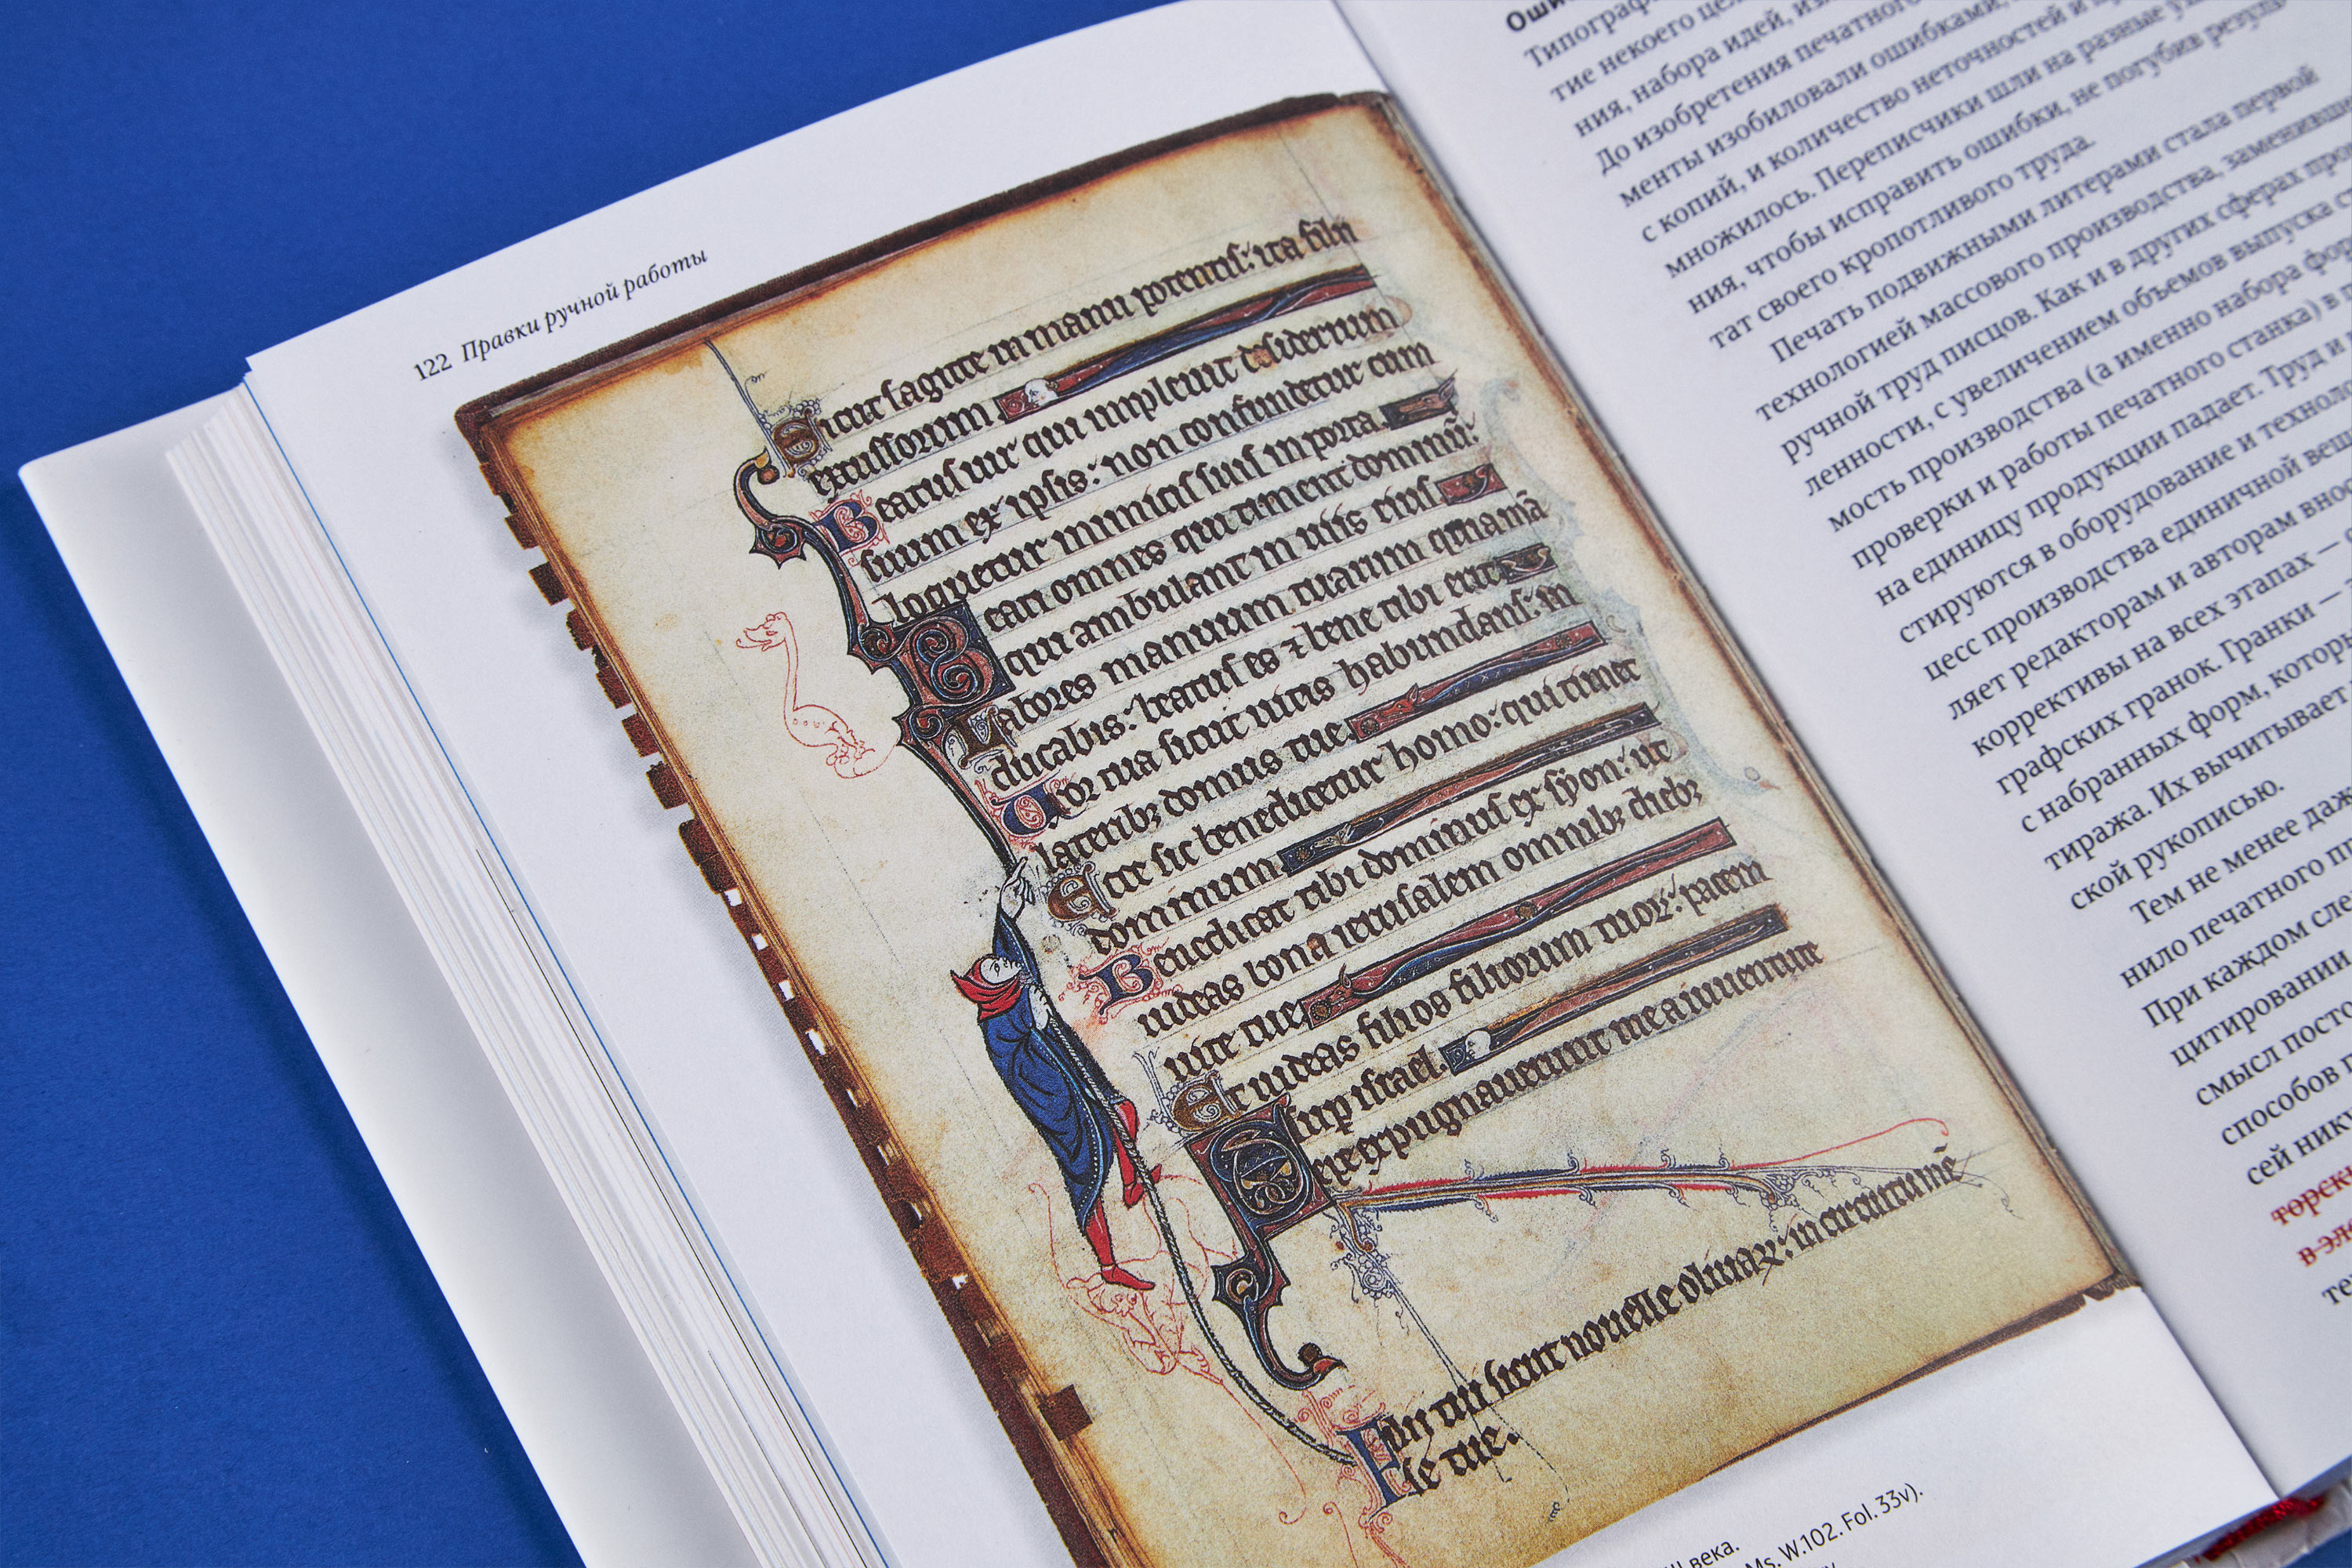 122 Правки ручной работы
Sicut sagitte in manu potentis: ita filii
excussorum.
Beatus uir qui impleuit desiderium
suum ex ipsis: non confundetur cum
loquetur inimicis suis in porta.
Beati omnes qui timent dominū:
qui ambulant in uiis eius.
Labores manuum tuarum quia mā
ducabis: beatus es ⁊ bene tibi erit.
Uxor tua sicut uitis habundans: in
laterib; domus tue.
Ecce sic benedicetur homo: qui timet
dominum.
Benedicat tibi dominus ex syon: ut
uideas bona ierusalem omnib; dieb;
uite tue.
Et uideas filios filiorum tuoꝝ: pacem
sup israel.
expugnauerunt me a iuuentute
Filii tui sicut nouelle oliuaꝝ: in circuitu mē
se tue.
века.
Ms. W.102. Fol. 33v).
Типограф
тие некоего
ния, набора идей,
До изобретения печатного
менты изобиловали ошибками,
с копий, и количество неточностей и
множилось. Переписчики шли на разные
ния, чтобы исправить ошибки, не погубив
тат своего кропотливого труда.
Печать подвижными литерами стала первой
технологией массового производства,
ручной труд писцов. Как и в других сферах
ленности, с увеличением объемов выпуска
мость производства (а именно набора
проверки и работы печатного станка) в
на единицу продукции падает. Труд и
стируются в оборудование и
цесс производства единичной
ляет редакторам и авторам
коррективы на всех этапах —
графских гранок. Гранки —
с набранных форм,
тиража. Их вычитывает
ской рукописью.
Тем не менее
нило печатного
При каждом
цитировании
смысл
способов
сей
торск
в эл